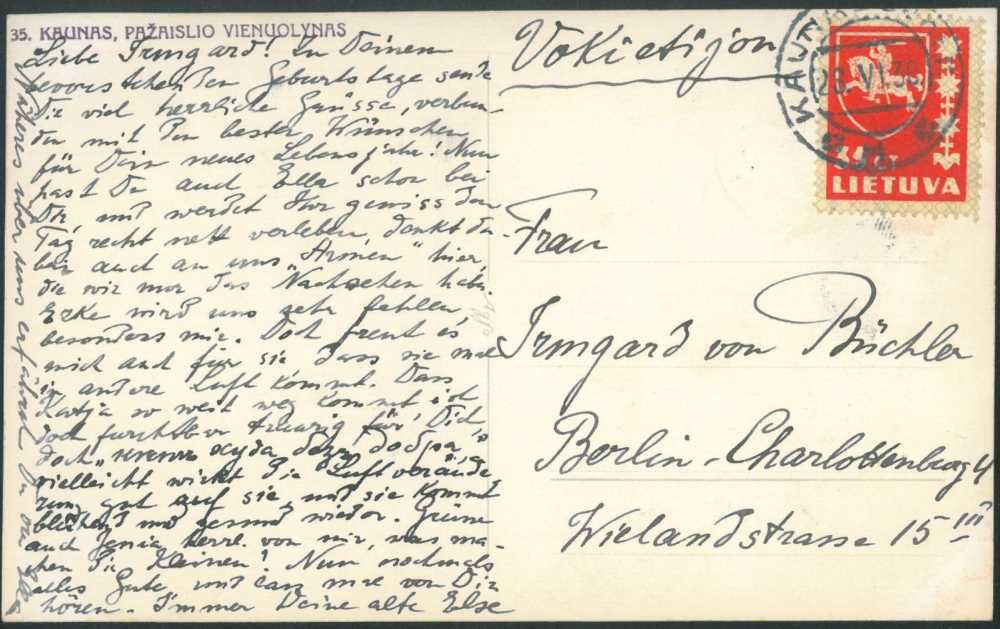 35. KAUNAS, PAŽAISLIO VIENUOLYNAS
Liebe Irmgard! In Deinem
bevorstehenden Geburtstage sende
Dir viel herzliche Grüsse, verbun-
den mit den besten Wünschen
für Dein neues Lebensjahr! Nun
hast Du auch Ella schon bei
Dir, und werdet Ihr gewiss den
Tag recht nett verleben, denkt da-
bei auch an uns „Armen" hier,
die wir nur das Nachsehen haben.
wird uns sehr fehlen,
besonders mir. Doch freut es
mich auch für sie dass sie mal
in andere Luft kommt. Dass
Katja so weit weg kommt ist
doch furchtbar traurig für Dich,
doch „ худа добра",
vielleicht wirkt die Luftverände-
rung gut auf sie, und sie kommt
blühend und gesund wieder. Grüsse
auch Jenia herzl. von mir, was ma-
chen die Kleinen? Nun nochmals
alles Gute, und lass mal von Dir
hören. Immer Deine alte Else
Näheres über uns erfährst Du von Ella
Vokietijon
KAUNAS
28.VI.39
CT
LIETUVA
Frau
Irmgard von Büchler
Berlin-Charlottenburg 4
Wielandstrasse 15 III